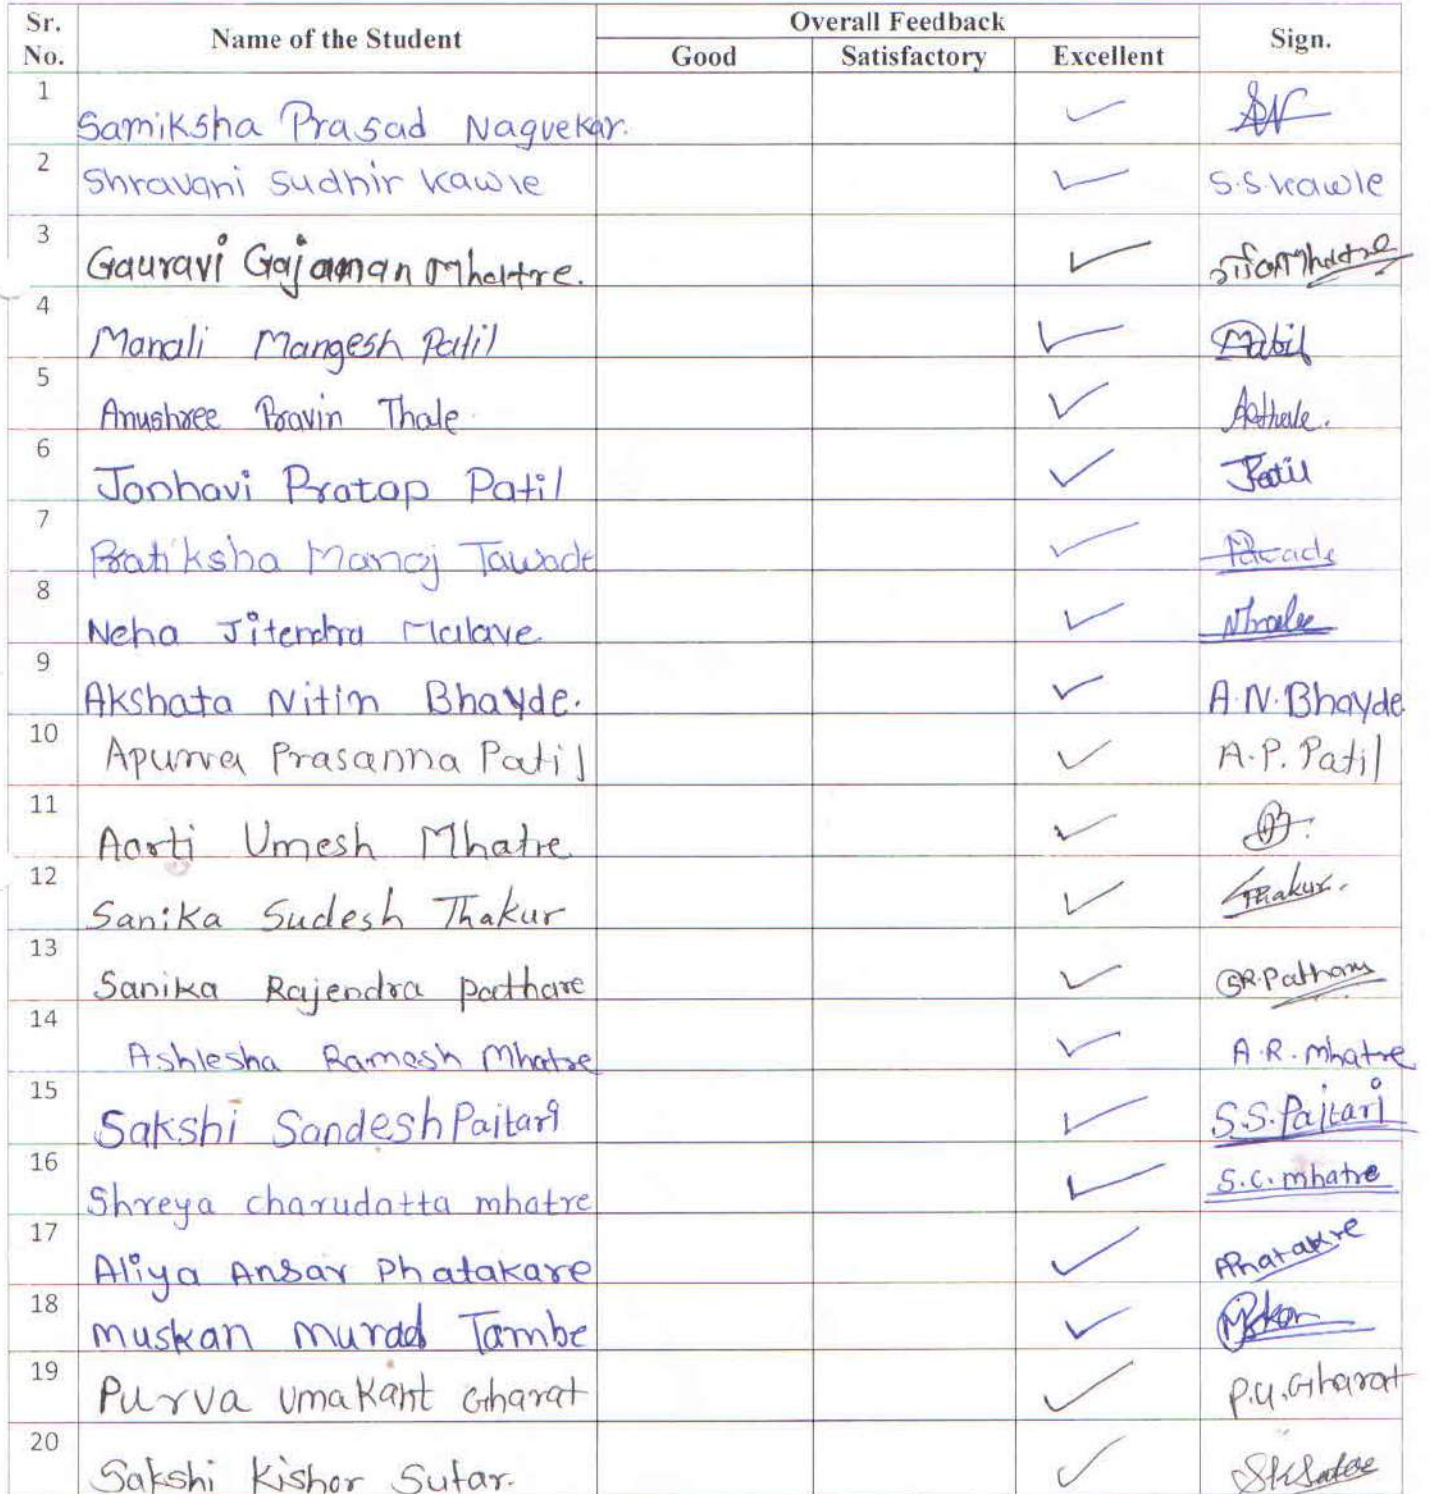 Sr. No. Name of the Student Overall Feedback Sign.
Good Satisfactory Excellent
1 Samiksha Prasad Nagvekar. ✓
2 Shravani Sudhir Kawle ✓ S.S.Kawle
3 Gauravi Gajanan Mhatre. ✓
4 Manali Mangesh Patil ✓
5 Anushree Pravin Thale. ✓
6 Janhavi Pratap Patil ✓ JPatil
7 Pratiksha Manoj Tawade ✓
8 Neha Jitendra Malave ✓
9 Akshata Nitin Bhayde. ✓ A.N.Bhayde
10 Apurva Prasanna Patil ✓ A.P. Patil
11 Aarti Umesh Mhatre ✓
12 Sanika Sudesh Thakur ✓ Thakur.
13 Sanika Rajendra Pathare ✓
14 Ashlesha Ramesh Mhatre ✓ A.R.mhatre
15 Sakshi Sandesh Paitari ✓ S.S.Paitari
16 Shreya charudatta mhatre ✓ S.C.mhatre
17 Aliya Ansar Phatakare ✓
18 muskan murad Tambe ✓
19 Purva Umakant Gharat ✓ P.U.Gharat
20 Sakshi Kishor Sutar. ✓